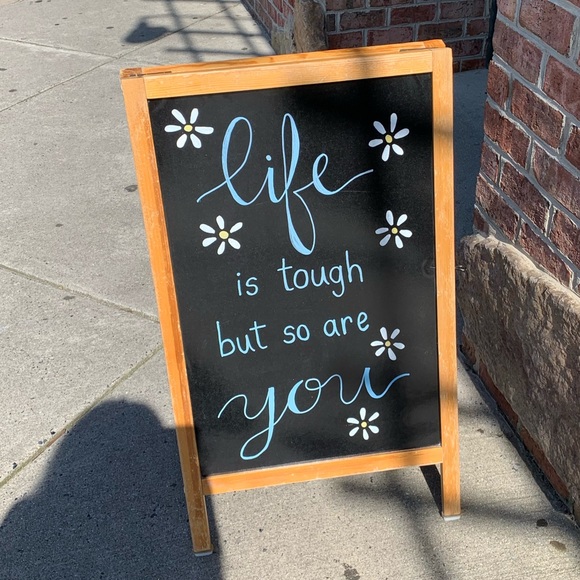 life
is tough
but so are
you